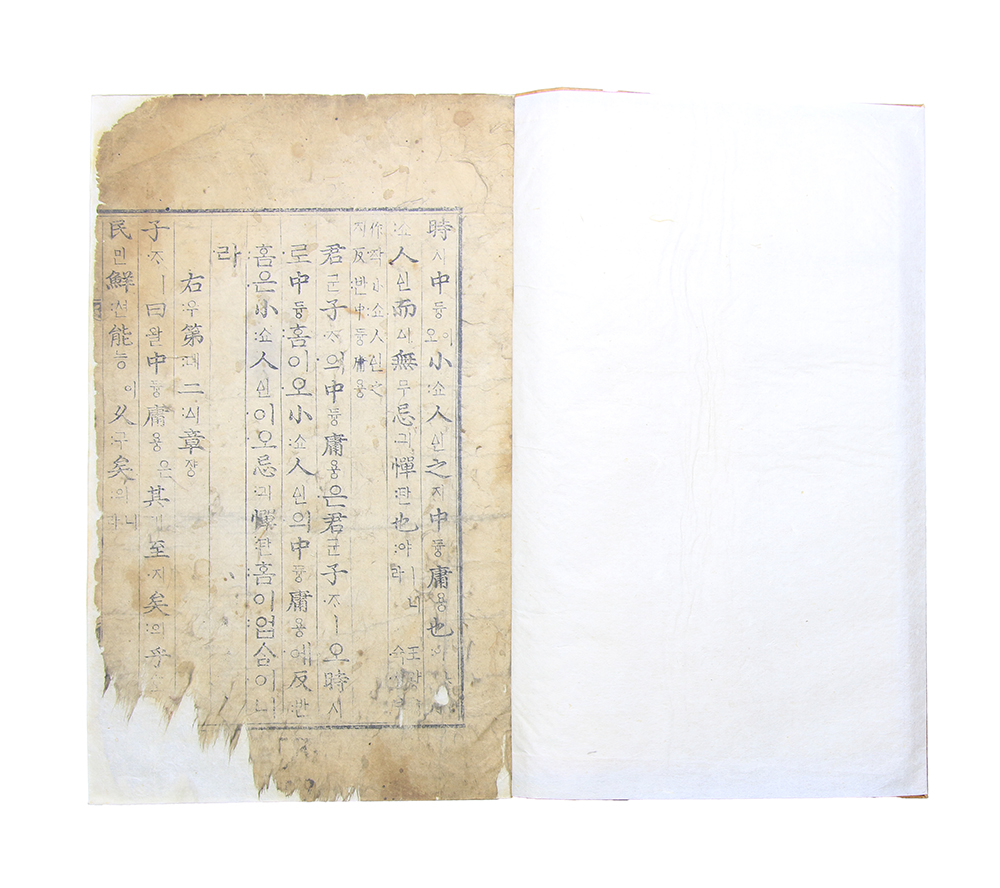 時시中듕이오小:쇼人ᅀᅵᆫ之지中듕庸용也:야
:쇼人ᅀᅵᆫ而ᅀᅵ無무忌긔憚:탄也:야ㅣ니라 王왕
作작小:쇼人ᅀᅵᆫ之
지反:반中듕庸용
君군子·ᄌᆞ의中듕庸용·은君군子·ᄌᆞㅣ·오時시
·로中듕·홈이·오小:쇼人ᅀᅵᆫ의中듕庸용·에反:반
·홈·은小:쇼人ᅀᅵᆫ이·오忌긔憚:탄·홈이:업슴이니
·라
右:우第:뎨二:ᅀᅵ章쟝
子·ᄌᆞㅣ曰·왈中듕庸용은其기至지矣:의乎
民민鮮:션能능이久:구矣:의니라